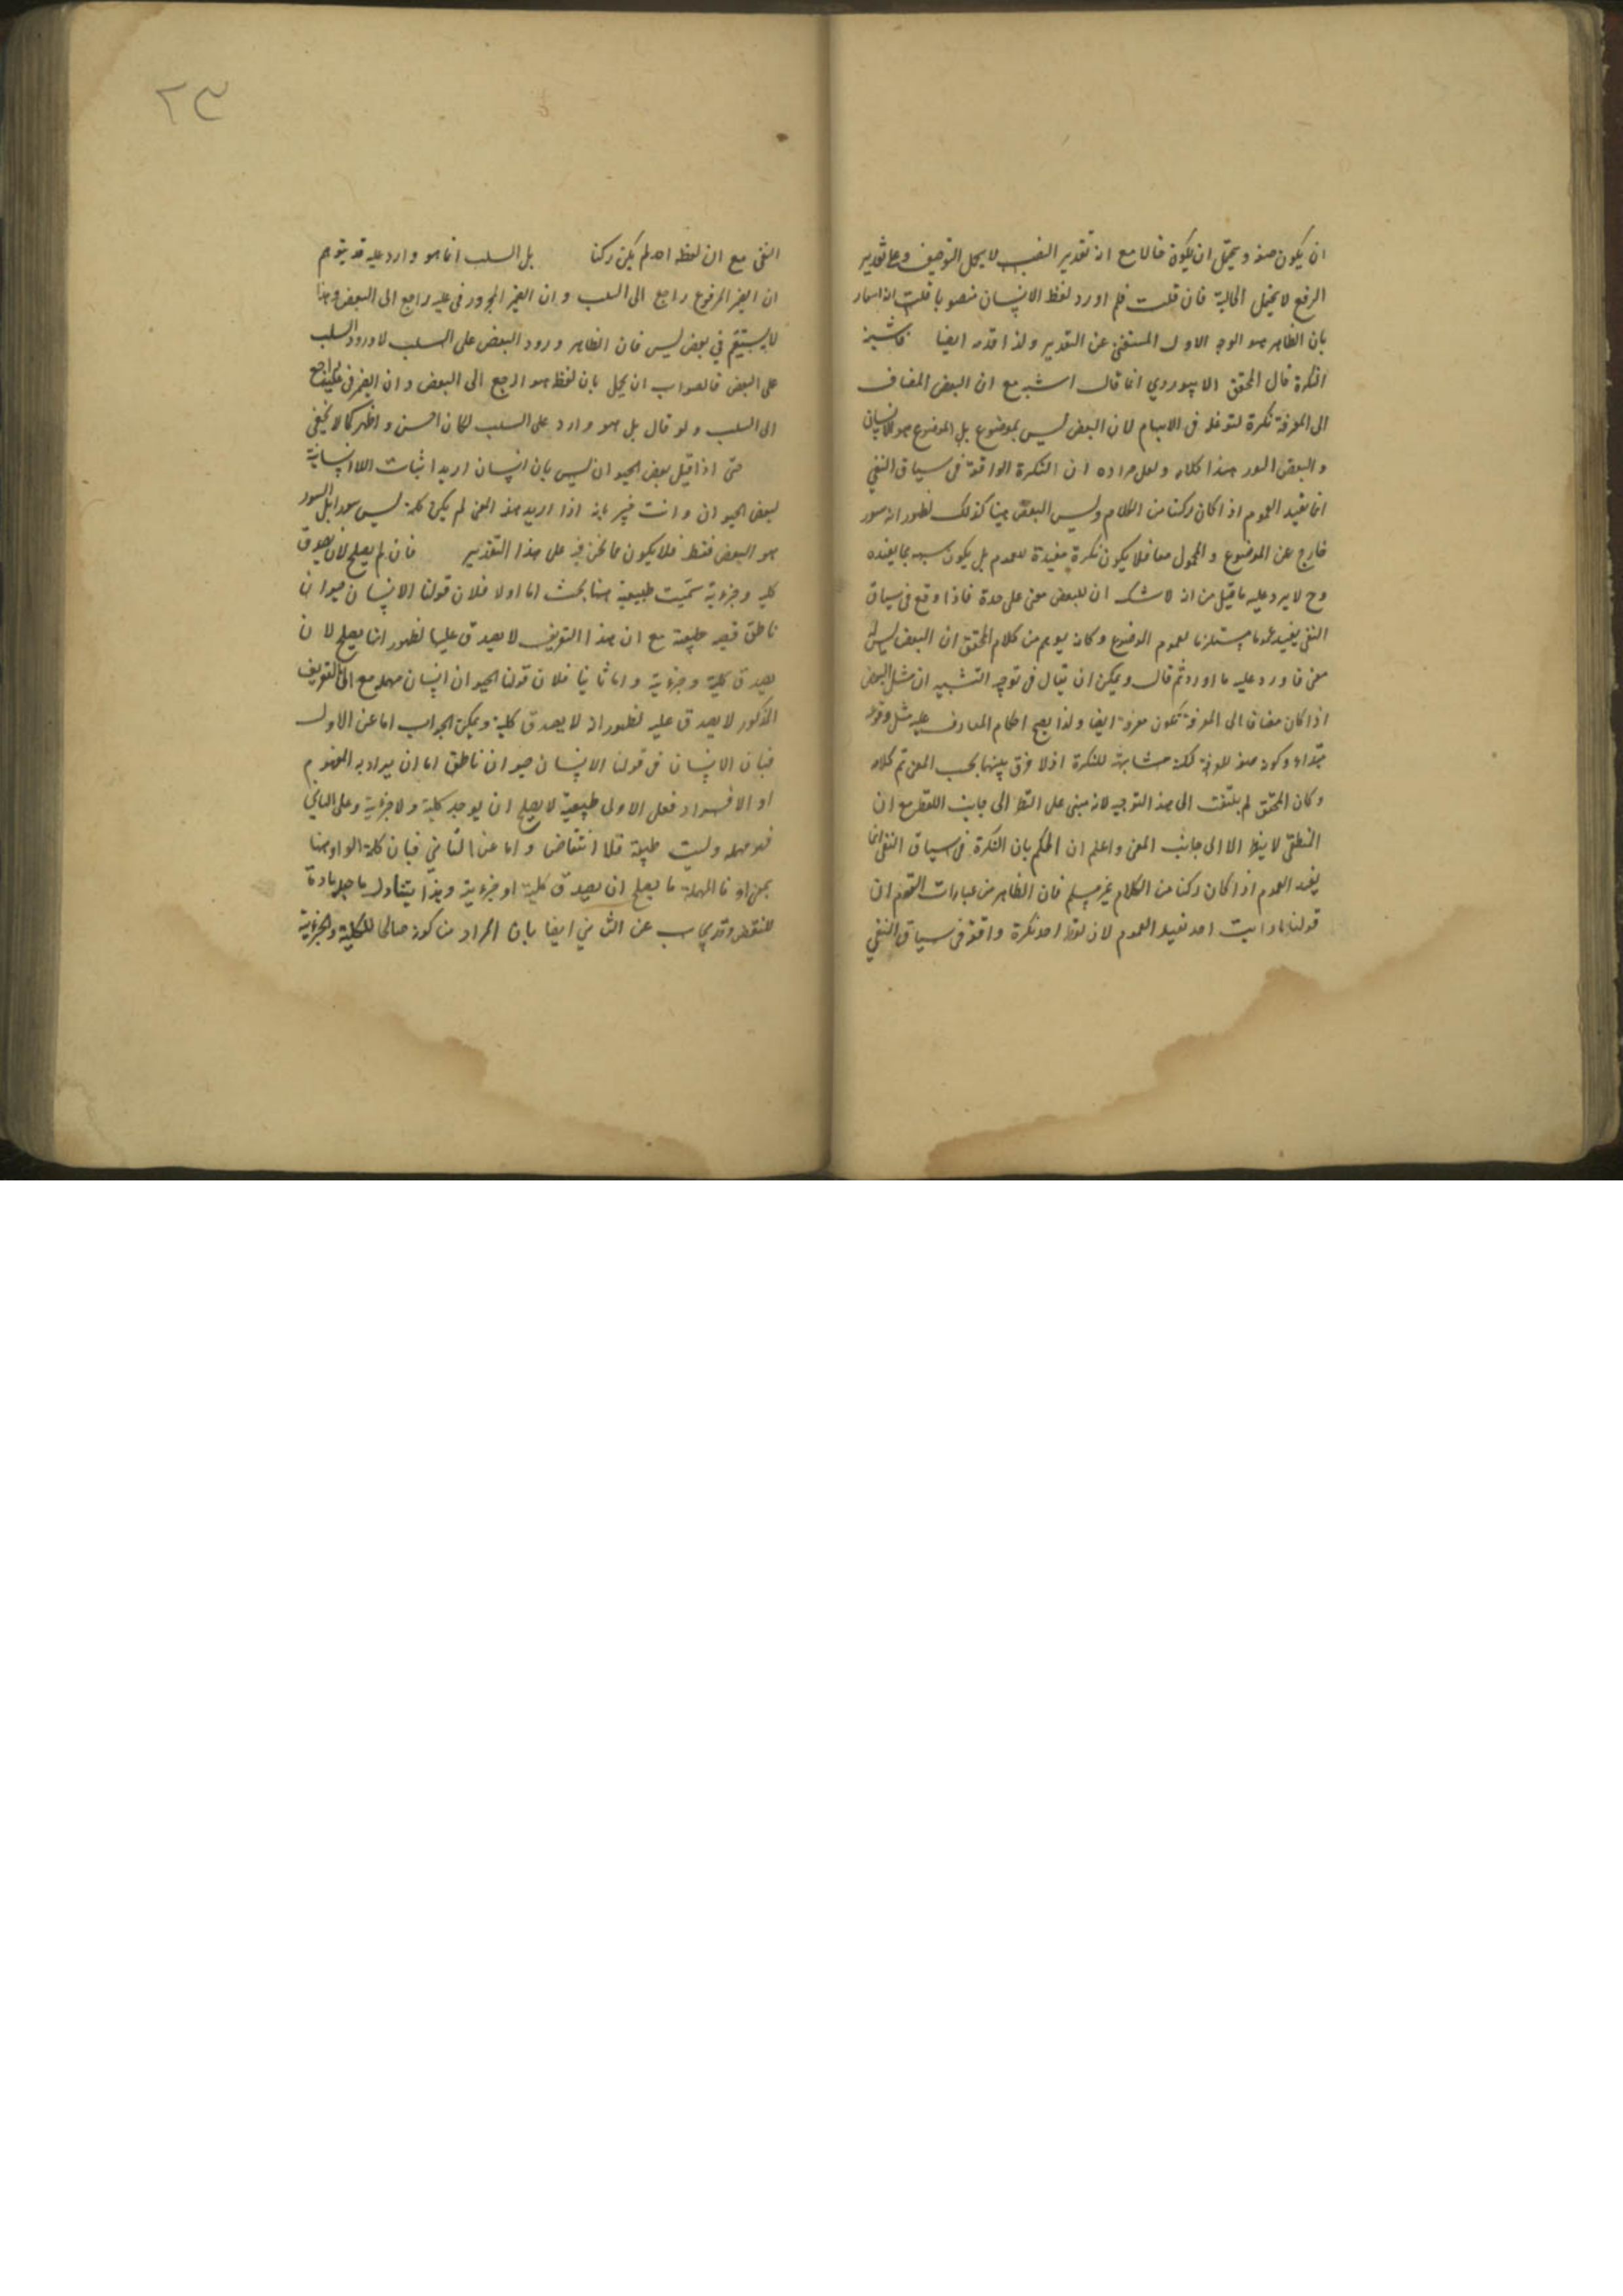 ان يكون صفة ويحتمل ان يكون حالا مع ان تقدير النصب لا يحمل التوصيف وعلى تقدير
الرفع لا يحتمل الحالية فان قلت فلم اورد لفظ الانسان منصوبا قلت اشار
بان الظاهر هو الوجه الاول المستغنى عن التقدير ولذا قدمه ايضا
النكرة قال المحقق الابيوردي انما قال اشبه مع ان البعض المضاف
الى المعرفة نكرة لتوغله فى الابهام لان البعض ليس بموضوع بل الموضوع هو الانسان
والبعض السور هذا كلامه ولعل مراده ان النكرة الواقعة فى سياق النفي
انما تفيد العموم اذا كان ركنا من الكلام وليس البعض هنا كذلك لظهور انه سور
خارج عن الموضوع والمحمول معا فلا يكون نكرة مفيدة للعموم بل يكون شبيه بما يفيده
وح لا يرد عليه ما قيل من انه لا شك ان للبعض معنى على حدة فاذا وقع فى سياق
النفى يفيد عموما مستلزما لعموم الموضوع وكانه يوهم من كلام المحقق ان البعض ليس له
معنى فاورد عليه ما اورد ثم قال ويمكن ان يقال فى توجيه التشبيه ان مثل البعض
اذا كان مضافا الى المعرفة تكون معرفة ايضا ولذا يصح احكام المعارف عليه مثل وقوعه
مبتداء وكونه صفة للمعرفة لكنه مشابهة للنكرة اذ لا فرق بينهما بحسب المعنى تم كلامه
وكان المحقق لم يلتفت الى هذا التوجيه لانه مبنى على النظر الى جانب اللفظ مع ان
المنطقى لا ينظر الا الى جانب المعنى واعلم ان الحكم بان النكرة فى سياق النفى انما
يفيد العموم اذا كان ركنا من الكلام غير مسلم فان الظاهر من عبارات القوم ان
قولنا ما رايت احد تفيد العموم لان لفظ احد نكرة واقعة فى سياق النفي
النفى مع ان لفظه احد لم يكن ركنا بل السلب انما هو وارد عليه قد يتوهم
ان الضمير المرفوع راجع الى السلب وان الضمير المجرور فى عليه راجع الى البعض وهذا
لا يستقيم في بعض ليس فان الظاهر ورود البعض على السلب لا ورود السلب
على البعض فالصواب ان يحمل بان لفظ هو الراجع الى البعض وان الضمير فى عليه راجع
الى السلب ولو قال بل هو وارد على السلب لكان احسن واظهر كما لا يخفى
حتى اذا قيل بعض الحيوان ليس بانسان اريد اثبات اللاانسانية
لبعض الحيوان وانت خبير بانه اذا اريد هذا المعنى لم يكن كلمة ليس سورا بل السور
هو البعض فقط فلا يكون مما نحن فيه على هذا التقدير فان لم يصلح لان يصدق
كلية وجزءية سميت طبيعية هنا بحث اما اولا فلان قولنا الانسان حيوان
ناطق قضية طبيعة مع ان هذا التعريف لا يصدق عليها لظهور انها يصلح لان
يصدق كلية وجزءية واما ثانيا فلان قولنا الحيوان انسان مهملة مع ان التعريف
المذكور لا يصدق عليه لظهور انه لا يصدق كلية ويمكن الجواب اما عن الاول
فبان الانسان فى قولنا الانسان حيوان ناطق اما ان يراد به المفهوم
او الافراد فعلى الاول طبيعية لا يصلح ان يوجد كلية ولا جزءية وعلى الثاني
فهو مهملة وليست طبيعة فلا انتقاض واما عن الثاني فبان كلمة الواو هنا
بمعنى او فالمهملة ما يصلح ان يصدق كلية او جزءية وهذا يتناول ما جعل مادة
للنقض وقد يجاب عن الثاني ايضا بان المراد من كونه صالحا للكلية والجزءية
٢٣